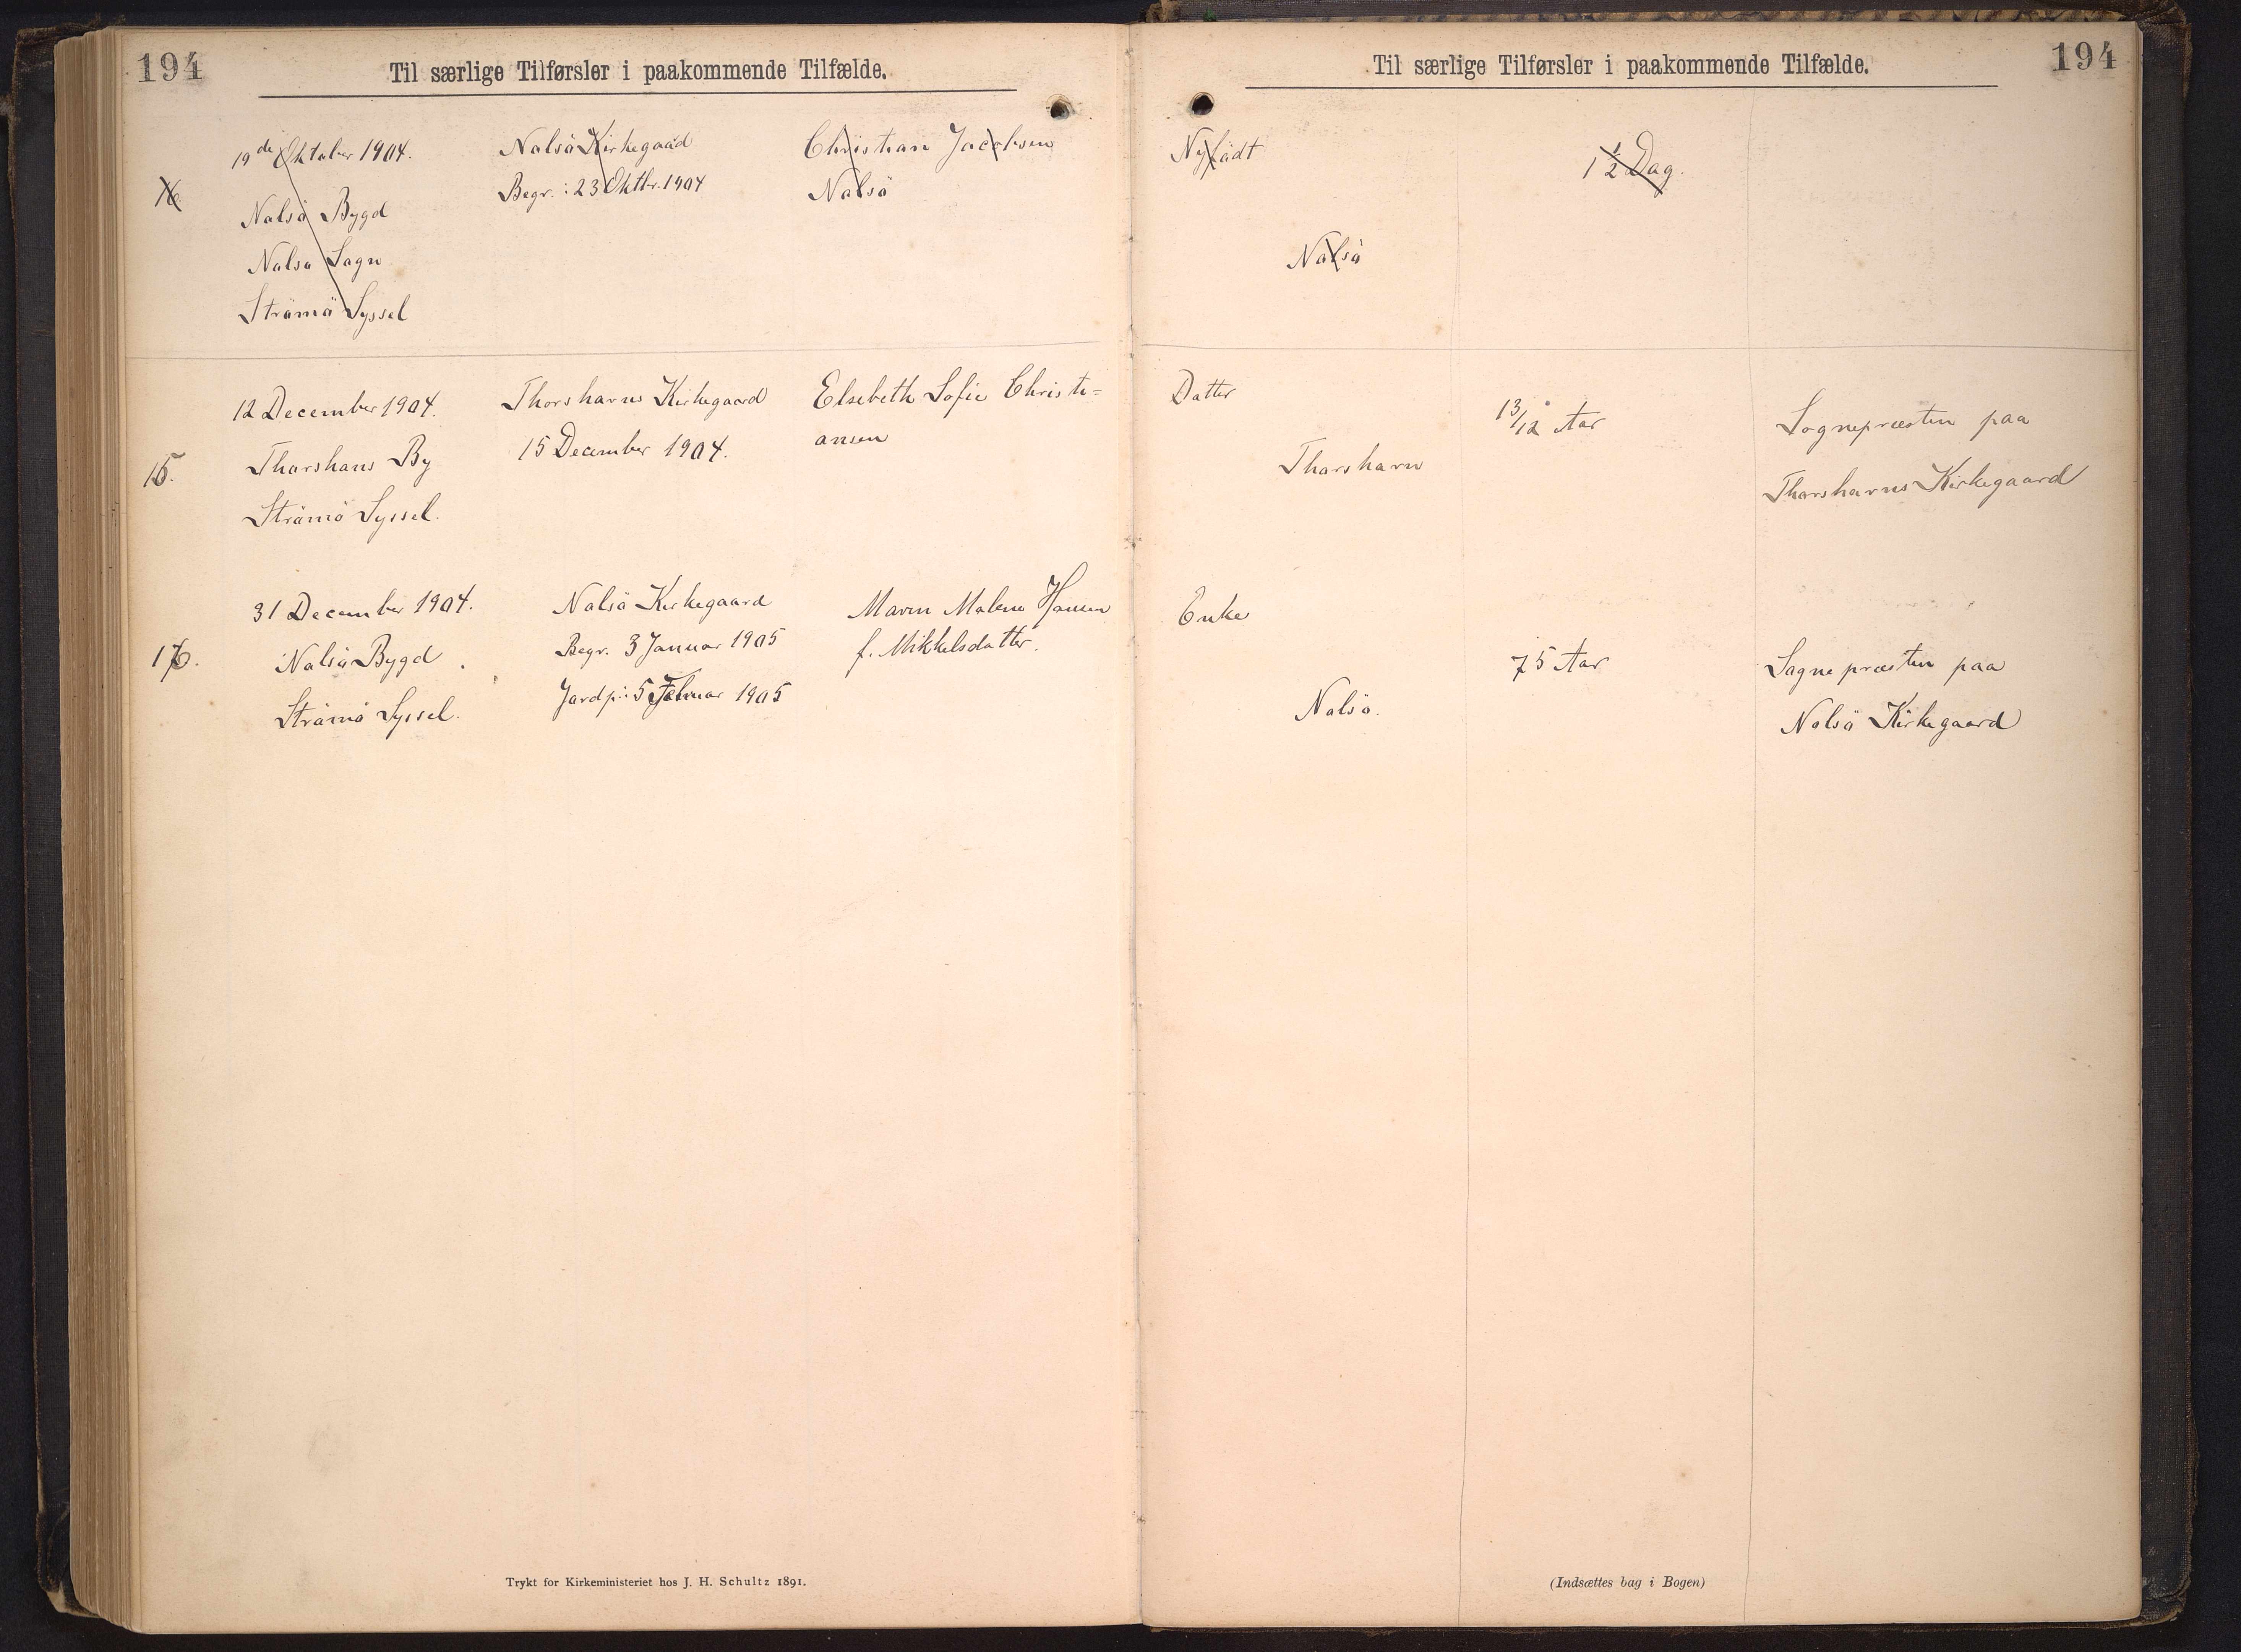 194
Til særlige Tilførsler i paakommende Tilfælde.
19de Oktober 1904.
Nolsö Bygd
Nolsö Sogn
Strömö Syssel
Nolsö Kirkegaad
Begr.: 23 Oktbr. 1904
Christian Jacobsen
Nolsö
15.
12 December 1904.
Thorshavns By
Strömö Syssel.
Thorshavns Kirkegaard
15 December 1904.
Elsebeth Sofie Christi=
ansen
16.
31 December 1904.
Nolsö Bygd
Strömö Syssel.
Nolsö Kirkegaard
Begr. 3 Januar 1905
Jordp.: 5 Februar 1905
Maren Malene Hansen
f. Mikkelsdatter.
Trykt for Kirkeministeriet hos J. H. Schultz 1891.
194
Til særlige Tilførsler i paakommende Tilfælde.
Nyfödt
Nolsö
1 1/2 Dag.
Datter
Thorshavn
13/12 Aar
Sognepræsten paa
Thorshavns Kirkegaard
Enke
Nolsö.
75 Aar
Sognepræsten paa
Nolsö Kirkegaard
(Indsættes bag i Bogen)